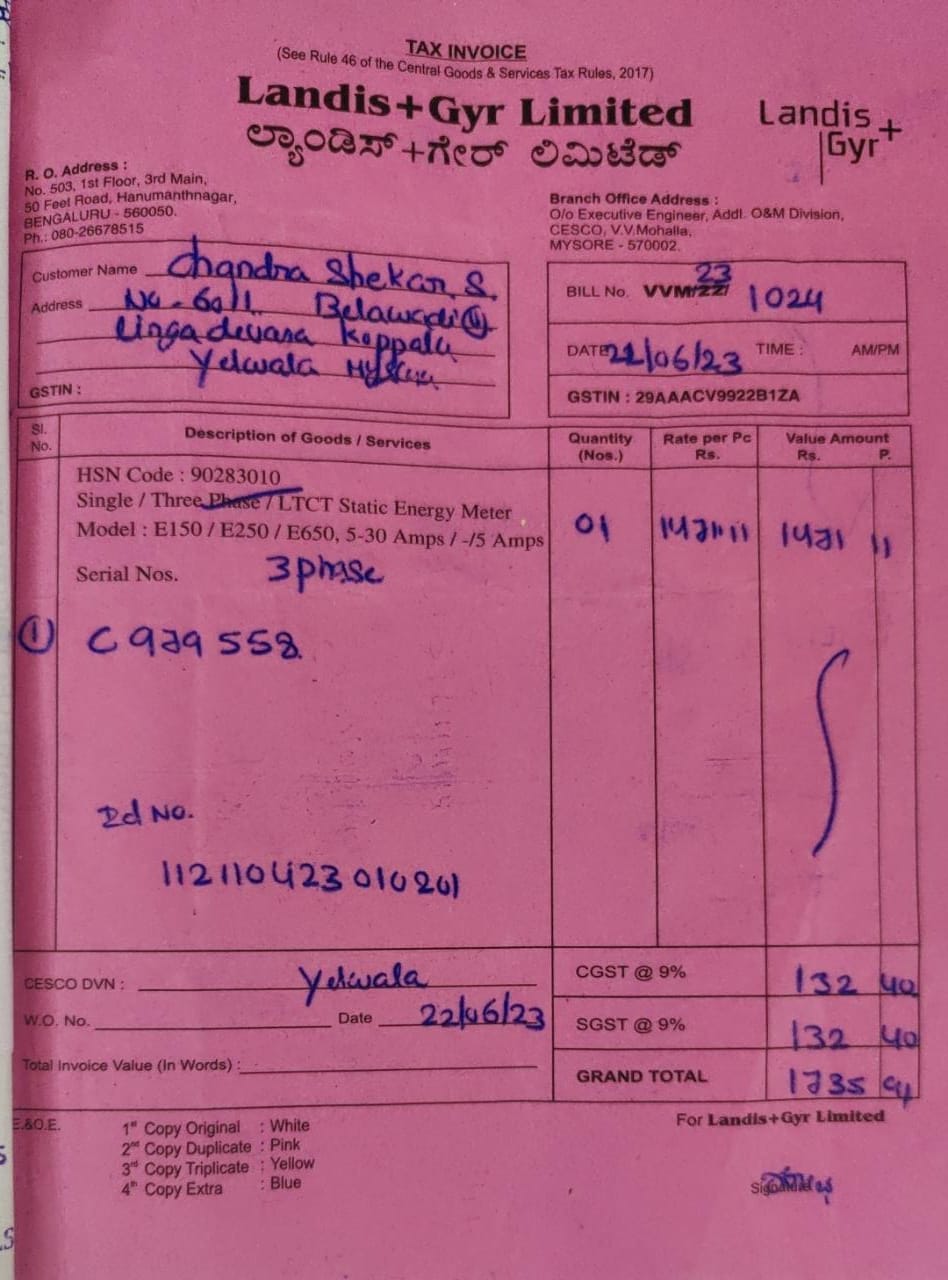 TAX INVOICE
(See Rule 46 of the Central Goods & Services Tax Rules, 2017)
Landis+Gyr Limited
ಲ್ಯಾಂಡಿಸ್+ಗೇರ್ ಲಿಮಿಟೆಡ್
Landis+
Gyr
R. O. Address :
No. 503, 1st Floor, 3rd Main,
50 Feel Road, Hanumanthnagar,
BENGALURU - 560050.
Ph.: 080-26678515
Branch Office Address :
O/o Executive Engineer, Addl. O&M Division,
CESCO, V.V.Mohalla,
MYSORE - 570002.
Customer Name Chandra Shekar. S.
Address No - 60/1. Belawadi
Lingadevara Koppalu
Yelwala
GSTIN :
BILL No. VVM/22/ 23 1024
DATE 22/06/23 TIME : AM/PM
GSTIN : 29AAACV9922B1ZA
Sl. No. Description of Goods / Services Quantity (Nos.) Rate per Pc Rs. Value Amount Rs. P.
HSN Code : 90283010
Single / Three Phase / LTCT Static Energy Meter
Model : E150 / E250 / E650, 5-30 Amps / -/5 Amps 01 1471.11 1471 11
Serial Nos. 3 phase
① C979558
Id No.
112110423010201
CESCO DVN : Yelwala
W.O. No. Date 22/06/23
Total Invoice Value (In Words) :
CGST @ 9% 132 40
SGST @ 9% 132 40
GRAND TOTAL 1735 91
E.&O.E.
1st Copy Original : White
2nd Copy Duplicate : Pink
3rd Copy Triplicate : Yellow
4th Copy Extra : Blue
For Landis+Gyr Limited